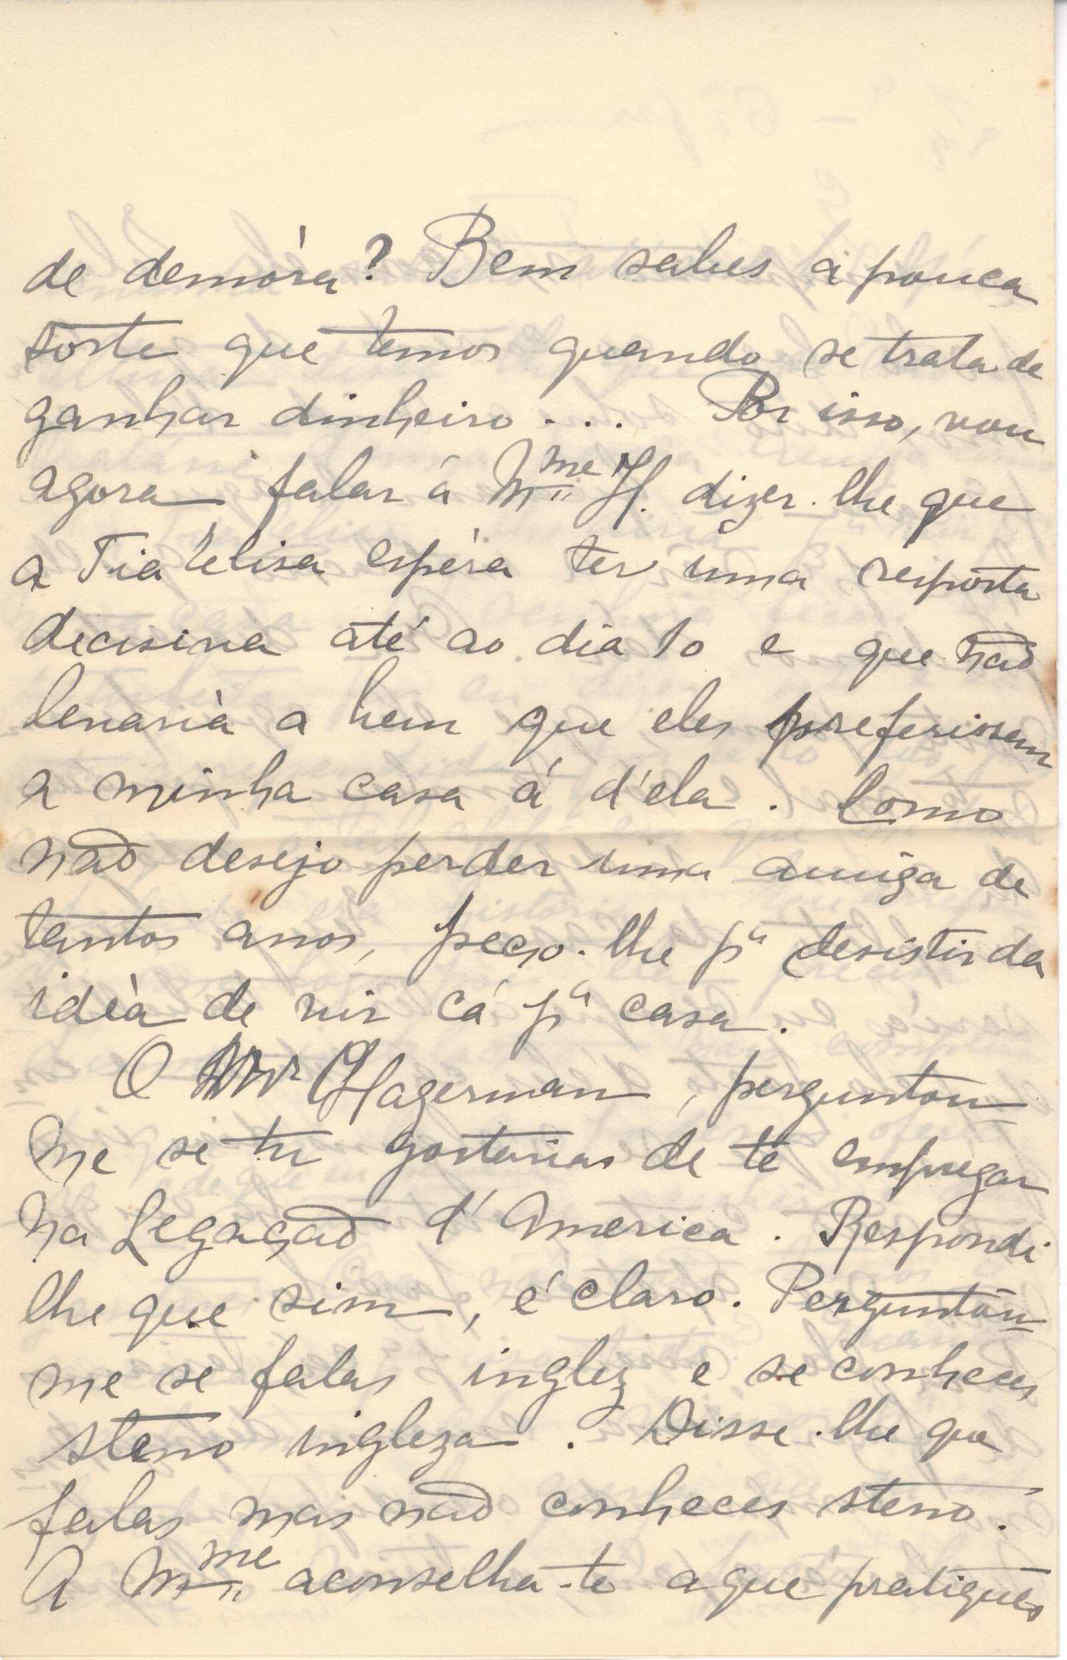 de demóra? Bem sabes a pouca
sorte que temos quando se trata de
ganhar dinheiro.... Por isso, vou
agora falar á Mme H. dizer-lhe que
a Tia Elisa espéra ter uma resposta
decisiva até ao dia 10 e que não
levaria a bem que eles preferissem
a minha casa á d'ela. Como
não desejo perder uma amiga de
tantos anos, peço-lhe pa desistir da
idèa de vir cá pa casa.
O Mr Hagerman, perguntou
me se tu gostarias de te empregar
na Legação d'America. Respondi
lhe que sim, é claro. Perguntou
me se falas inglez e se conheces
steno ingleza. Disse-lhe que
falas mas não conheces steno.
A Mme aconselha-te a que pratiques